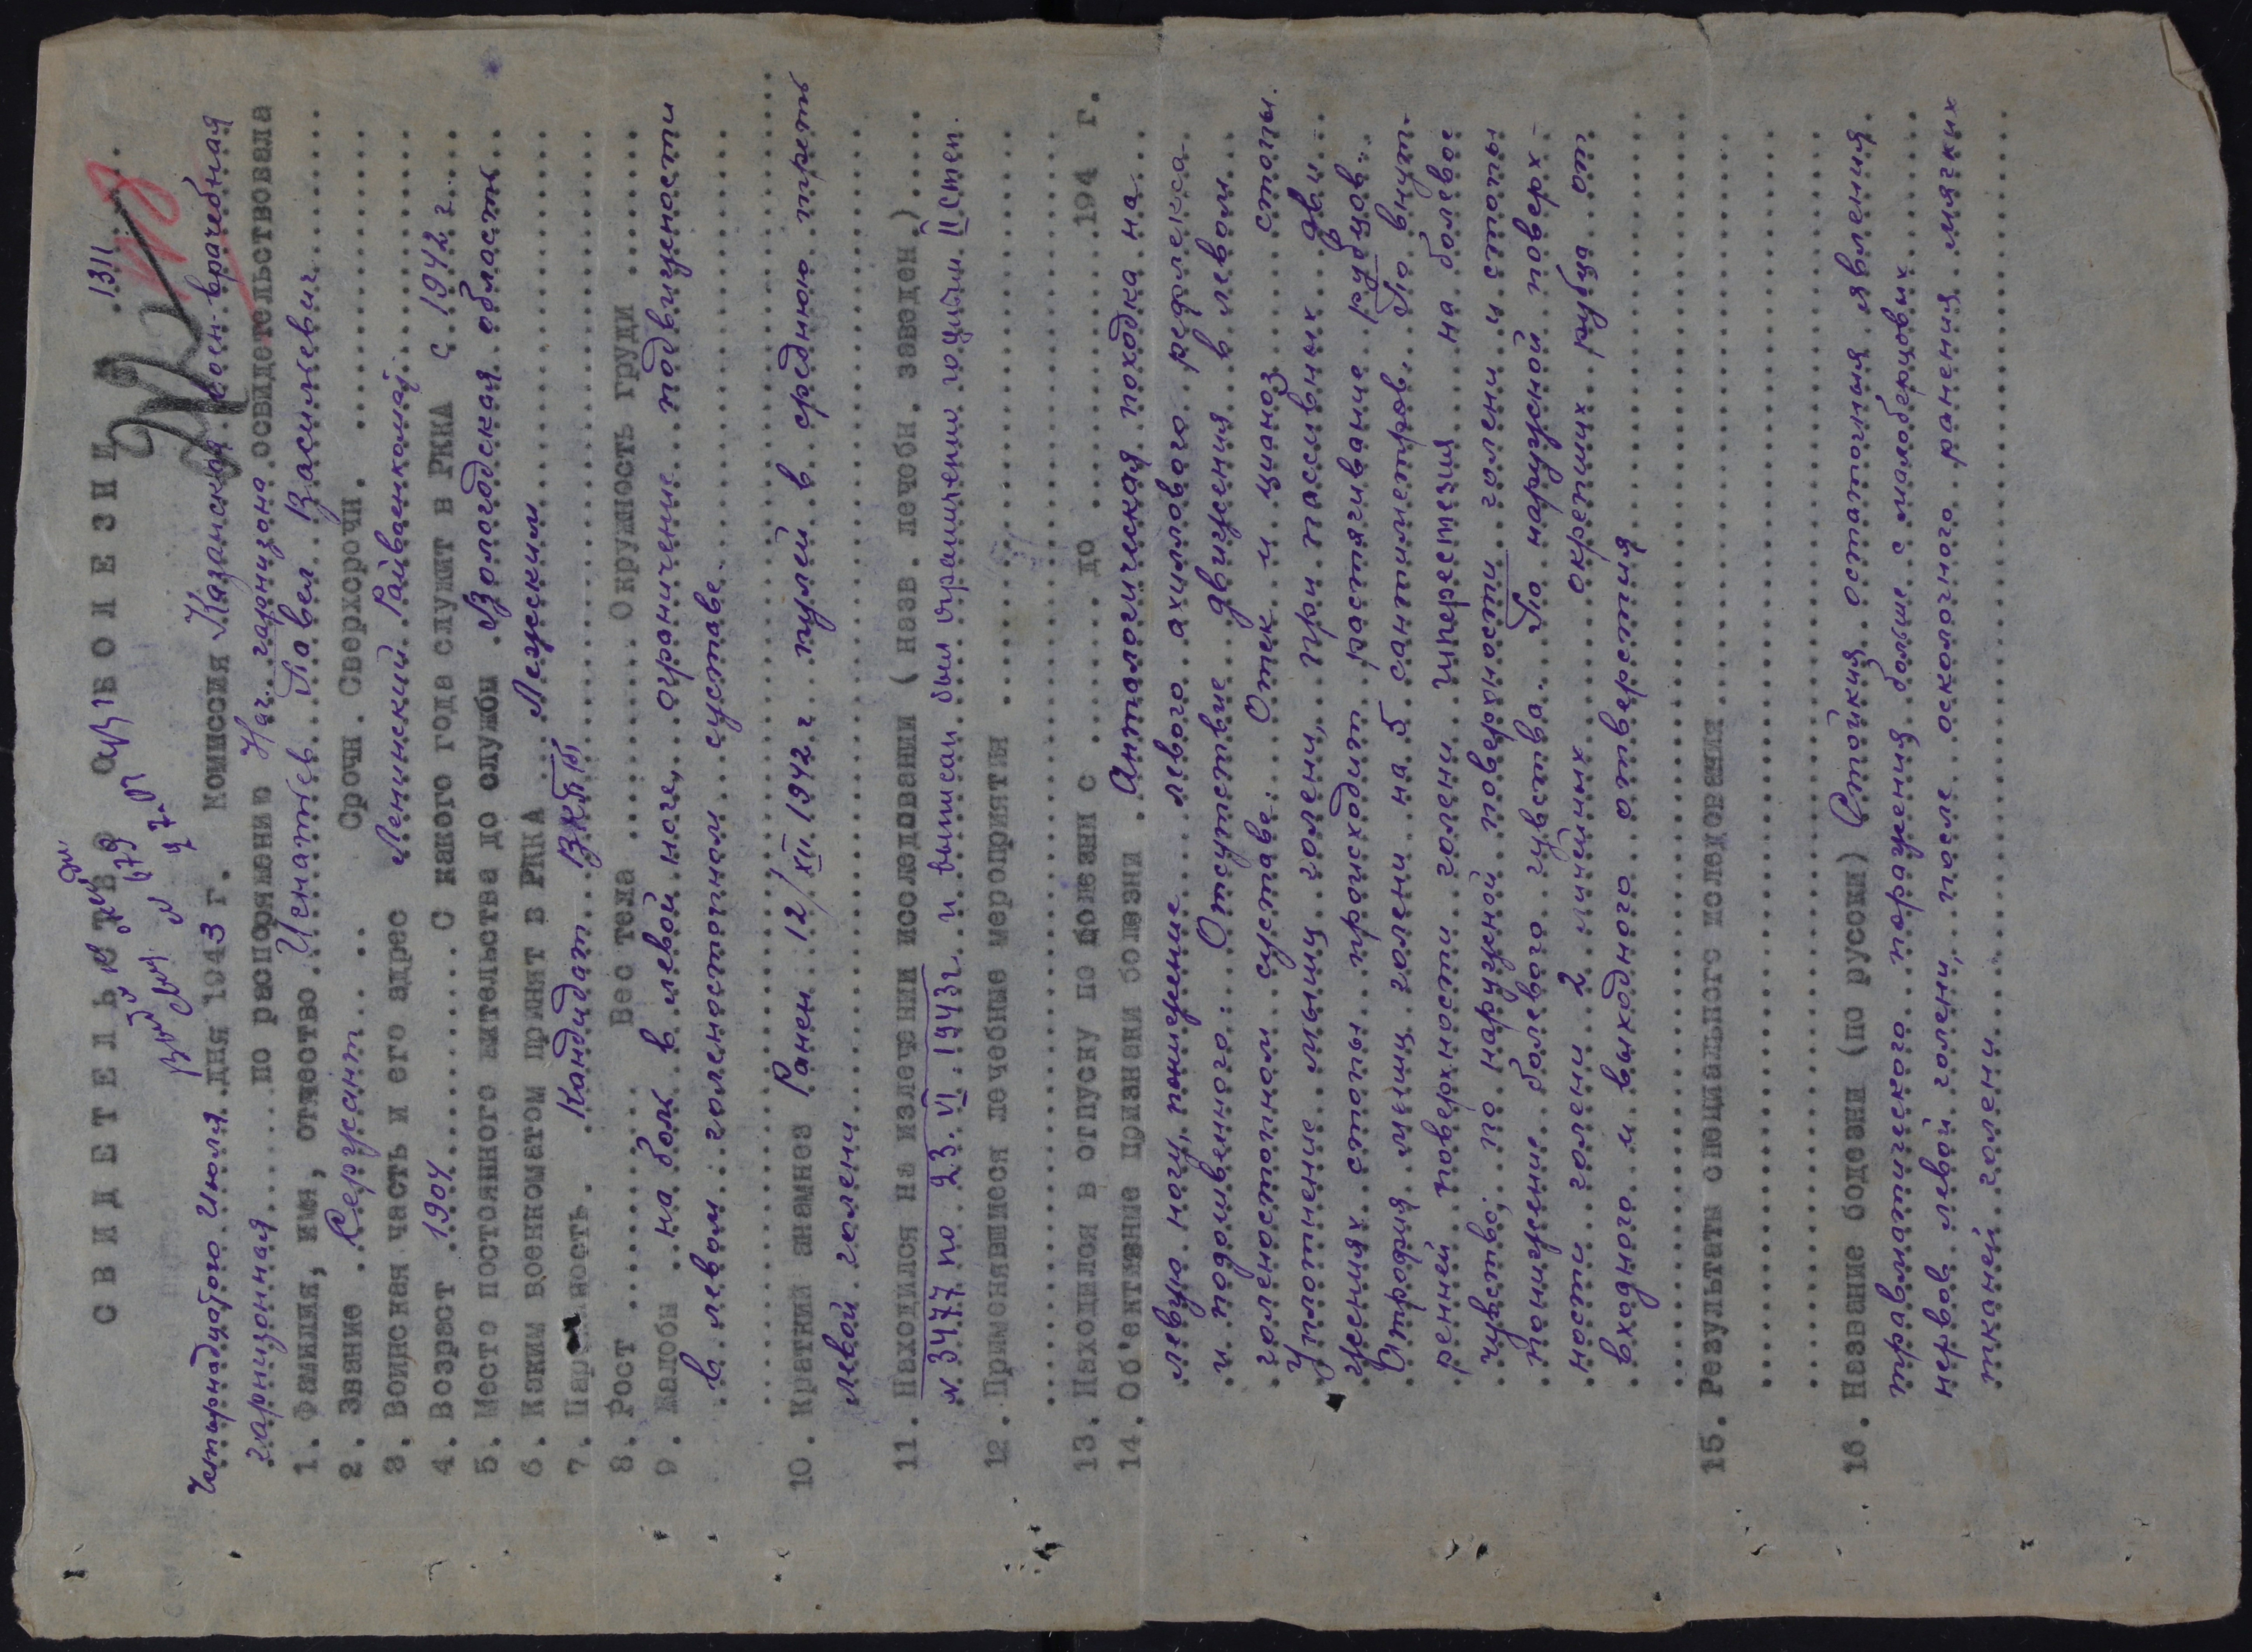 СВИДЕТЕЛЬСТВО О БОЛЕЗНИ № 1311
Четырнадцатого Июля дня 1943 г. Комиссия Казанская воен-врачебная
гарнизонная по распоряжению Нач. гарнизона освидетельствовала
1. Фамилия, имя, отчество Игнатьев Павел Васильевич
2. Звание Сержант Срочн. Сверхсрочн.
3. Воинская часть и его адрес Ленинский Райвоенкомат
4. Возраст 1904 С какого года служит в РККА с 1942 г.
5. Место постоянного жительства до службы Вологодская область
6. Каким военкоматом принят в РККА Лежским
7. Партийность. Кандидат ВКП(б)
8. Рост Вес тела Окружность груди
9. Жалобы на боль в левой ноге, ограничение подвижности
в левом голеностопном суставе.
10. Краткий анамнез Ранен 12/XII 1942 г пулей в среднюю треть
левой голени
11. Находился на излечении исследовании (назв. лечебн. заведен.)
№ 3477 по 23.VI.1943г. и выписан был ограниченно годным II степ.
12. Применявшиеся лечебные мероприятия
13. Находился в отпуску по болезни с до 194 г.
14. Об'ективные признаки болезни Анталгическая походка на
левую ногу, понижение левого ахиллового рефлекса
и подошвенного. Отсутствие движения в левом
голеностопном суставе. Отек и цианоз стопы.
Уплотнение мышц голени, при пассивных дви-
жениях стопы происходит растягивание рубцов.
Атрофия мышц голени на 5 сантиметров. По внут-
ренней поверхности голени гиперестезия на болевое
чувство, по наружной поверхности голени и стопы
понижение болевого чувства. По наружной поверх-
ности голени 2 линейных окрепших рубца от
входного и выходного отверстия
15. Результаты специального исследования
16. Название болезни (по русски) Стойкия остаточныя явления
травматического поражения больше с малоберцовых
нервов левой голени, после осколочного ранения мягких
тканей голени